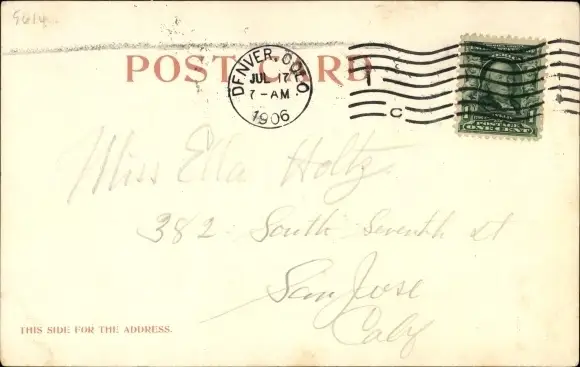 9614
POST CARD
DENVER, COLO.
JUL 17
7-AM
1906
1
C
POSTAGE
ONE CENT
Miss Ella Holtz
382 South Seventh St
San Jose
Caly
THIS SIDE FOR THE ADDRESS.